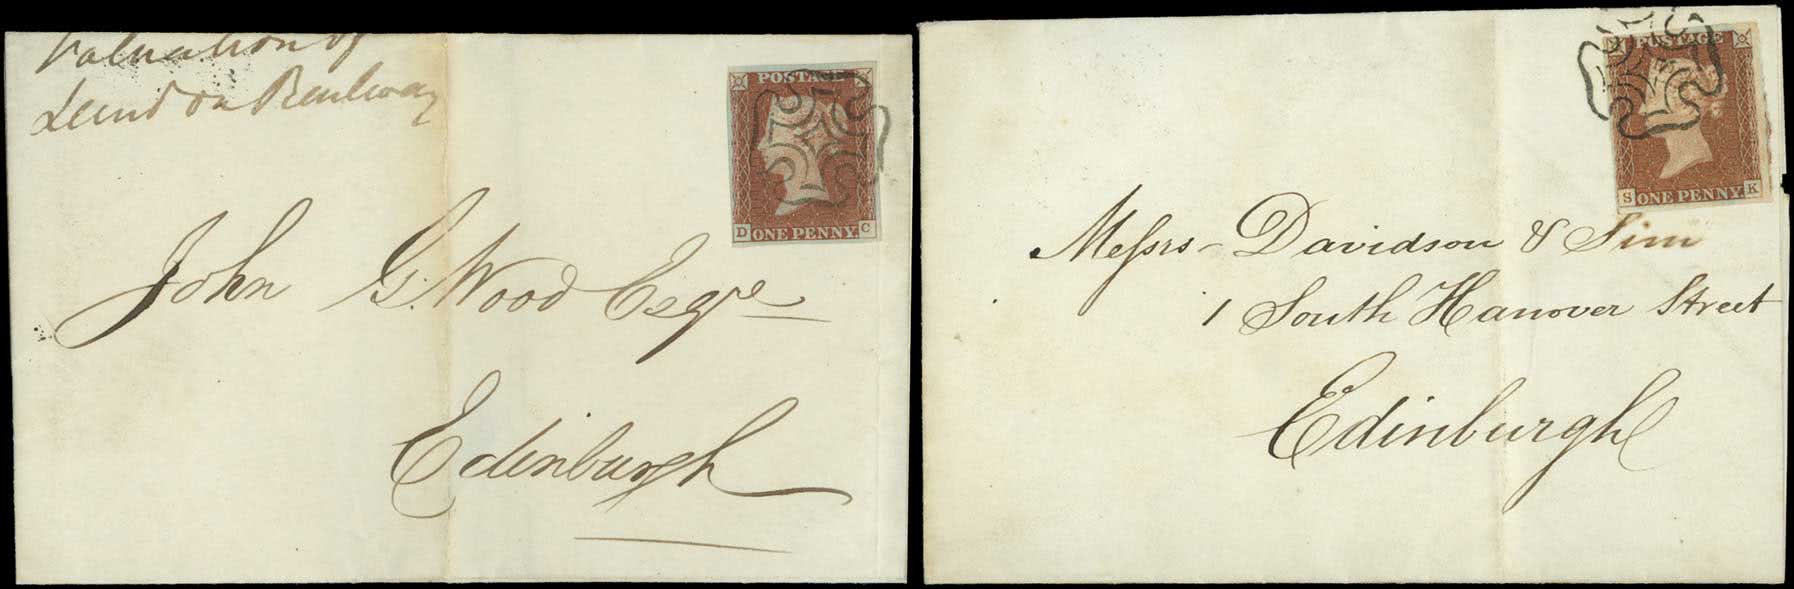 Valuation of
Land on Railway
POSTAGE
D ONE PENNY. C
John G. Wood Esqre
Edinburgh
POSTAGE
S ONE PENNY. K
Messrs Davidson & Sim
1 South Hanover Street
Edinburgh